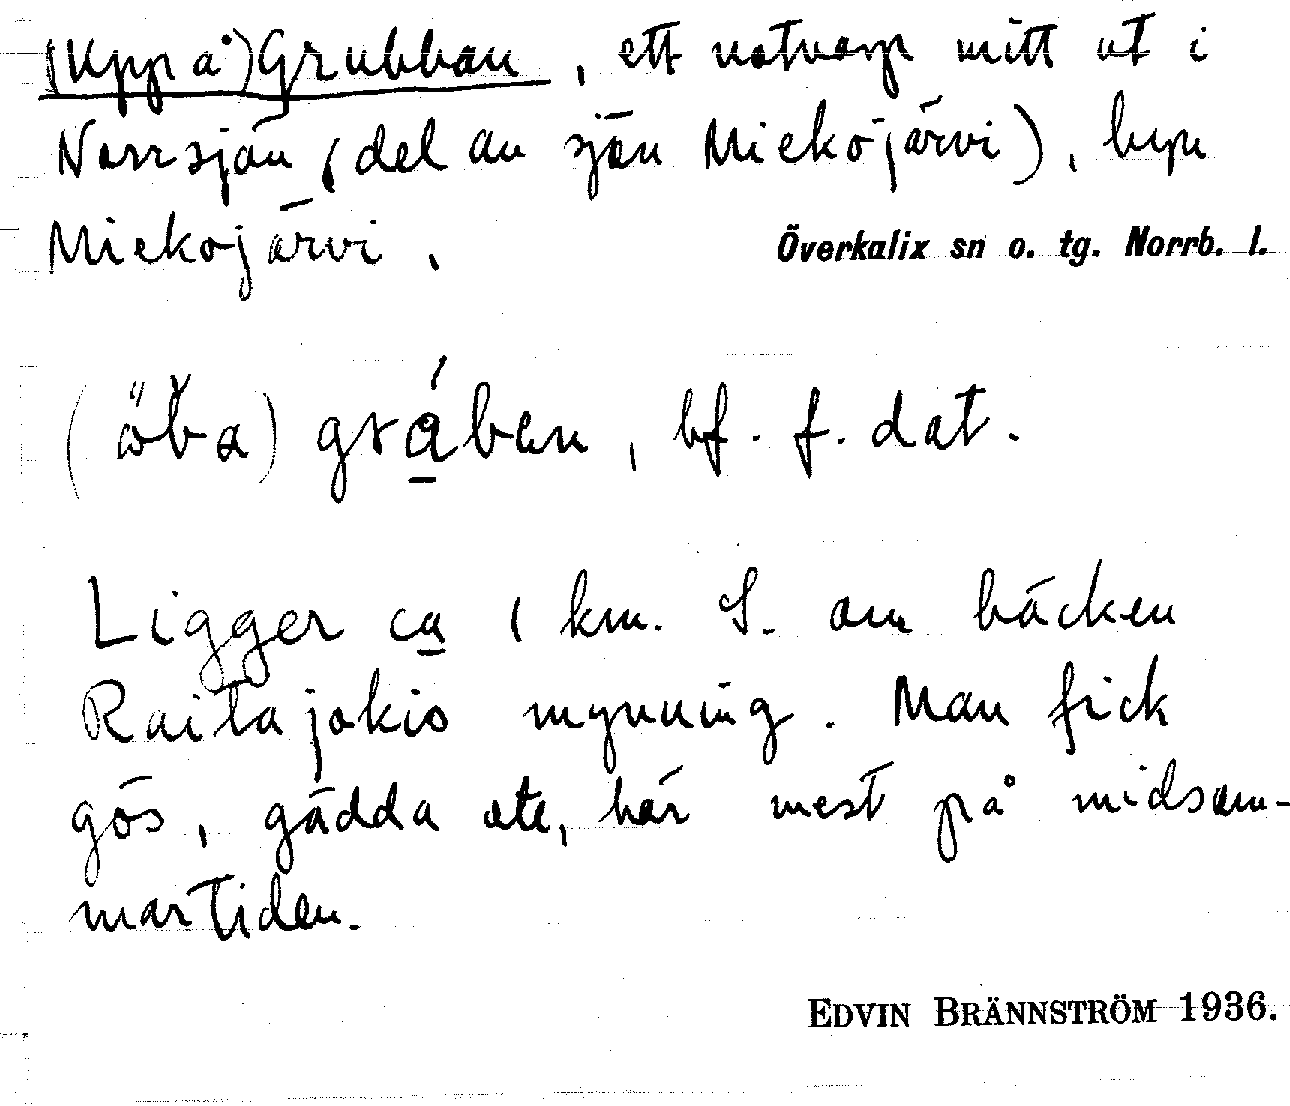 (Uppå) Grubban, ett notvarp mitt ut i
Norrsjön (del av sjön Miekojärvi), byn
Miekojärvi.
Överkalix sn o. tg. Norrb. l.
bf. f. dat.
Ligger ca 1 km. S. om bäcken
Raitajokis mynning. Man fick
gös, gädda etc, här mest på midsom-
martiden.
EDVIN BRÄNNSTRÖM 1936.